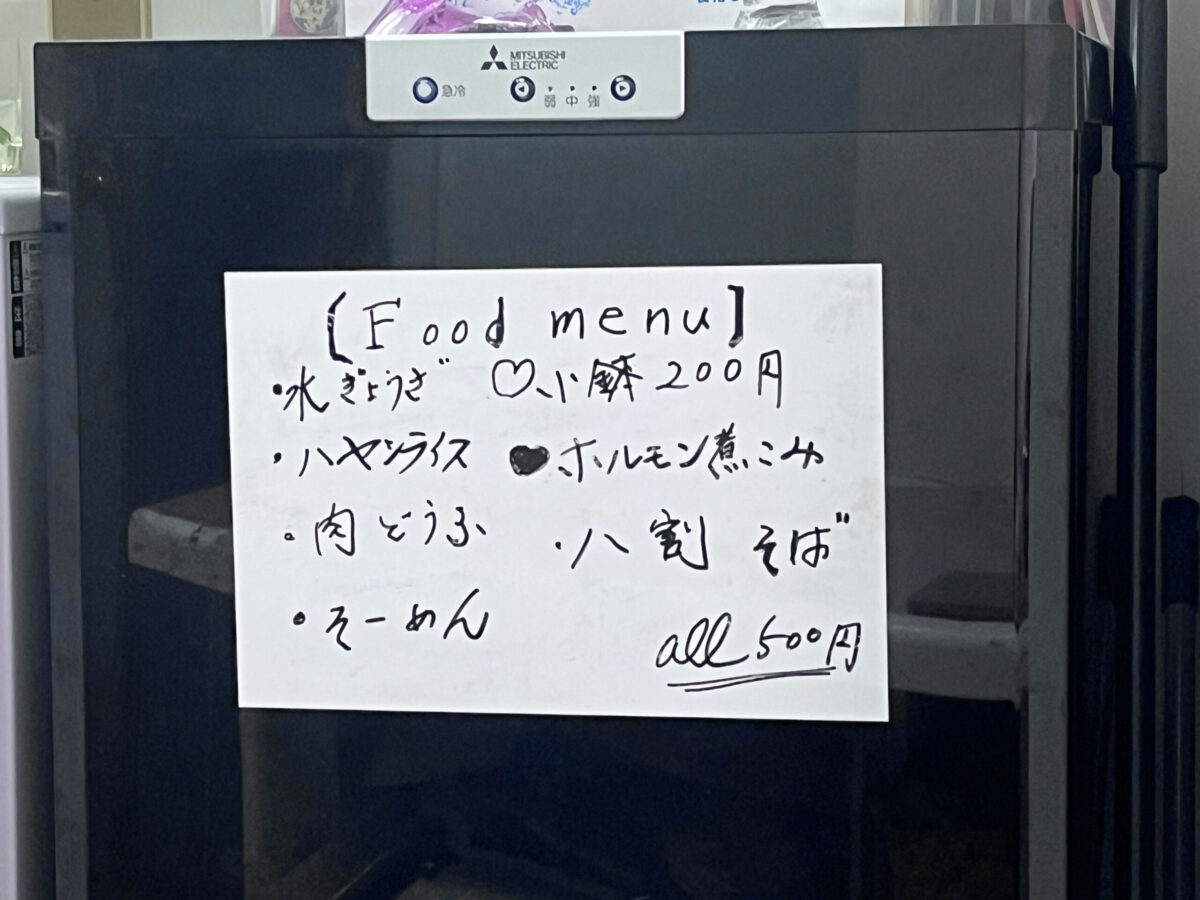 MITSUBISHI
ELECTRIC
急冷 弱 中 強
[Food menu]
・水ぎょうざ ♡小鉢 200円
・ハヤシライス ♥ホルモン煮こみ
・肉どうふ ・八割そば
・そーめん
all 500円